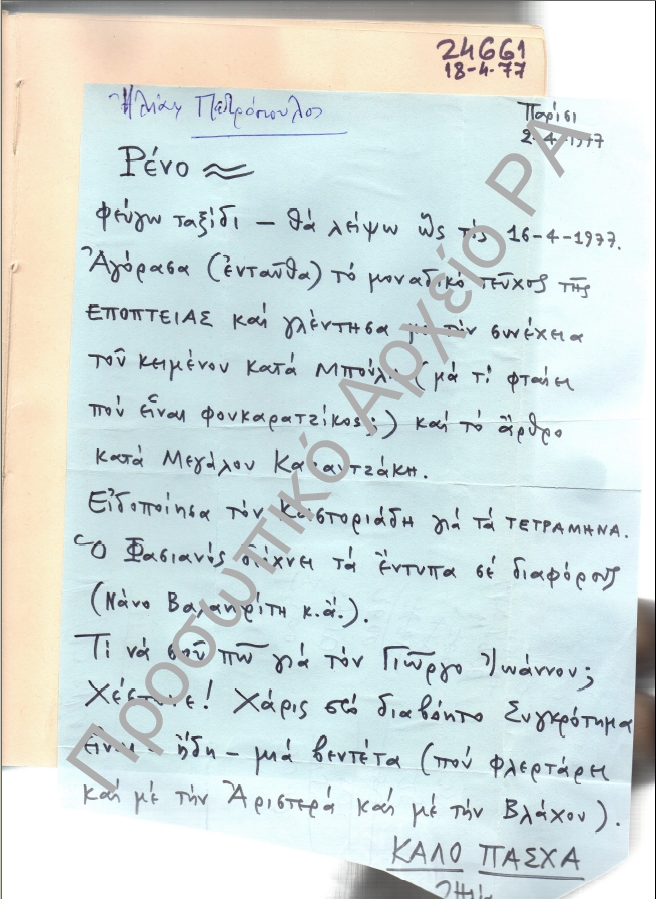 24661
18-4-77
Ἠλίας Πετρόπουλος
Παρίσι
2-4-1977
Ρένο
φεύγω ταξίδι — θά λείψω ὣς τίς 16-4-1977.
Ἀγόρασα (ἐνταῦθα) τό μοναδικό τεῦχος τῆς
ΕΠΟΠΤΕΙΑΣ καί γλέντησα μέ τήν συνέχεια
τοῦ κειμένου κατά (μά τί φταίει
πού εἶναι φουκαρατζίκος;) καί τό ἄρθρο
κατά Μεγάλου Καζαντζάκη.
Εἰδοποίησα τόν Καστοριάδη γιά τά ΤΕΤΡΑΜΗΝΑ.
Ὁ Φασιανός δείχνει τά ἔντυπα σέ διαφόρους
(Νάνο Βαλαωρίτη κ.ἄ.).
Τί νά σοῦ πῶ γιά τόν Γιῶργο Ἰωάννου;
Χάρις στό διαβόητο Συγκρότημα
εἶναι – ἤδη – μιά βεντέτα (πού φλερτάρει
καί μέ τήν Ἀριστερά καί μέ τήν Βλάχου).
ΚΑΛΟ ΠΑΣΧΑ
Προσωπικό Αρχείο ΡΑ